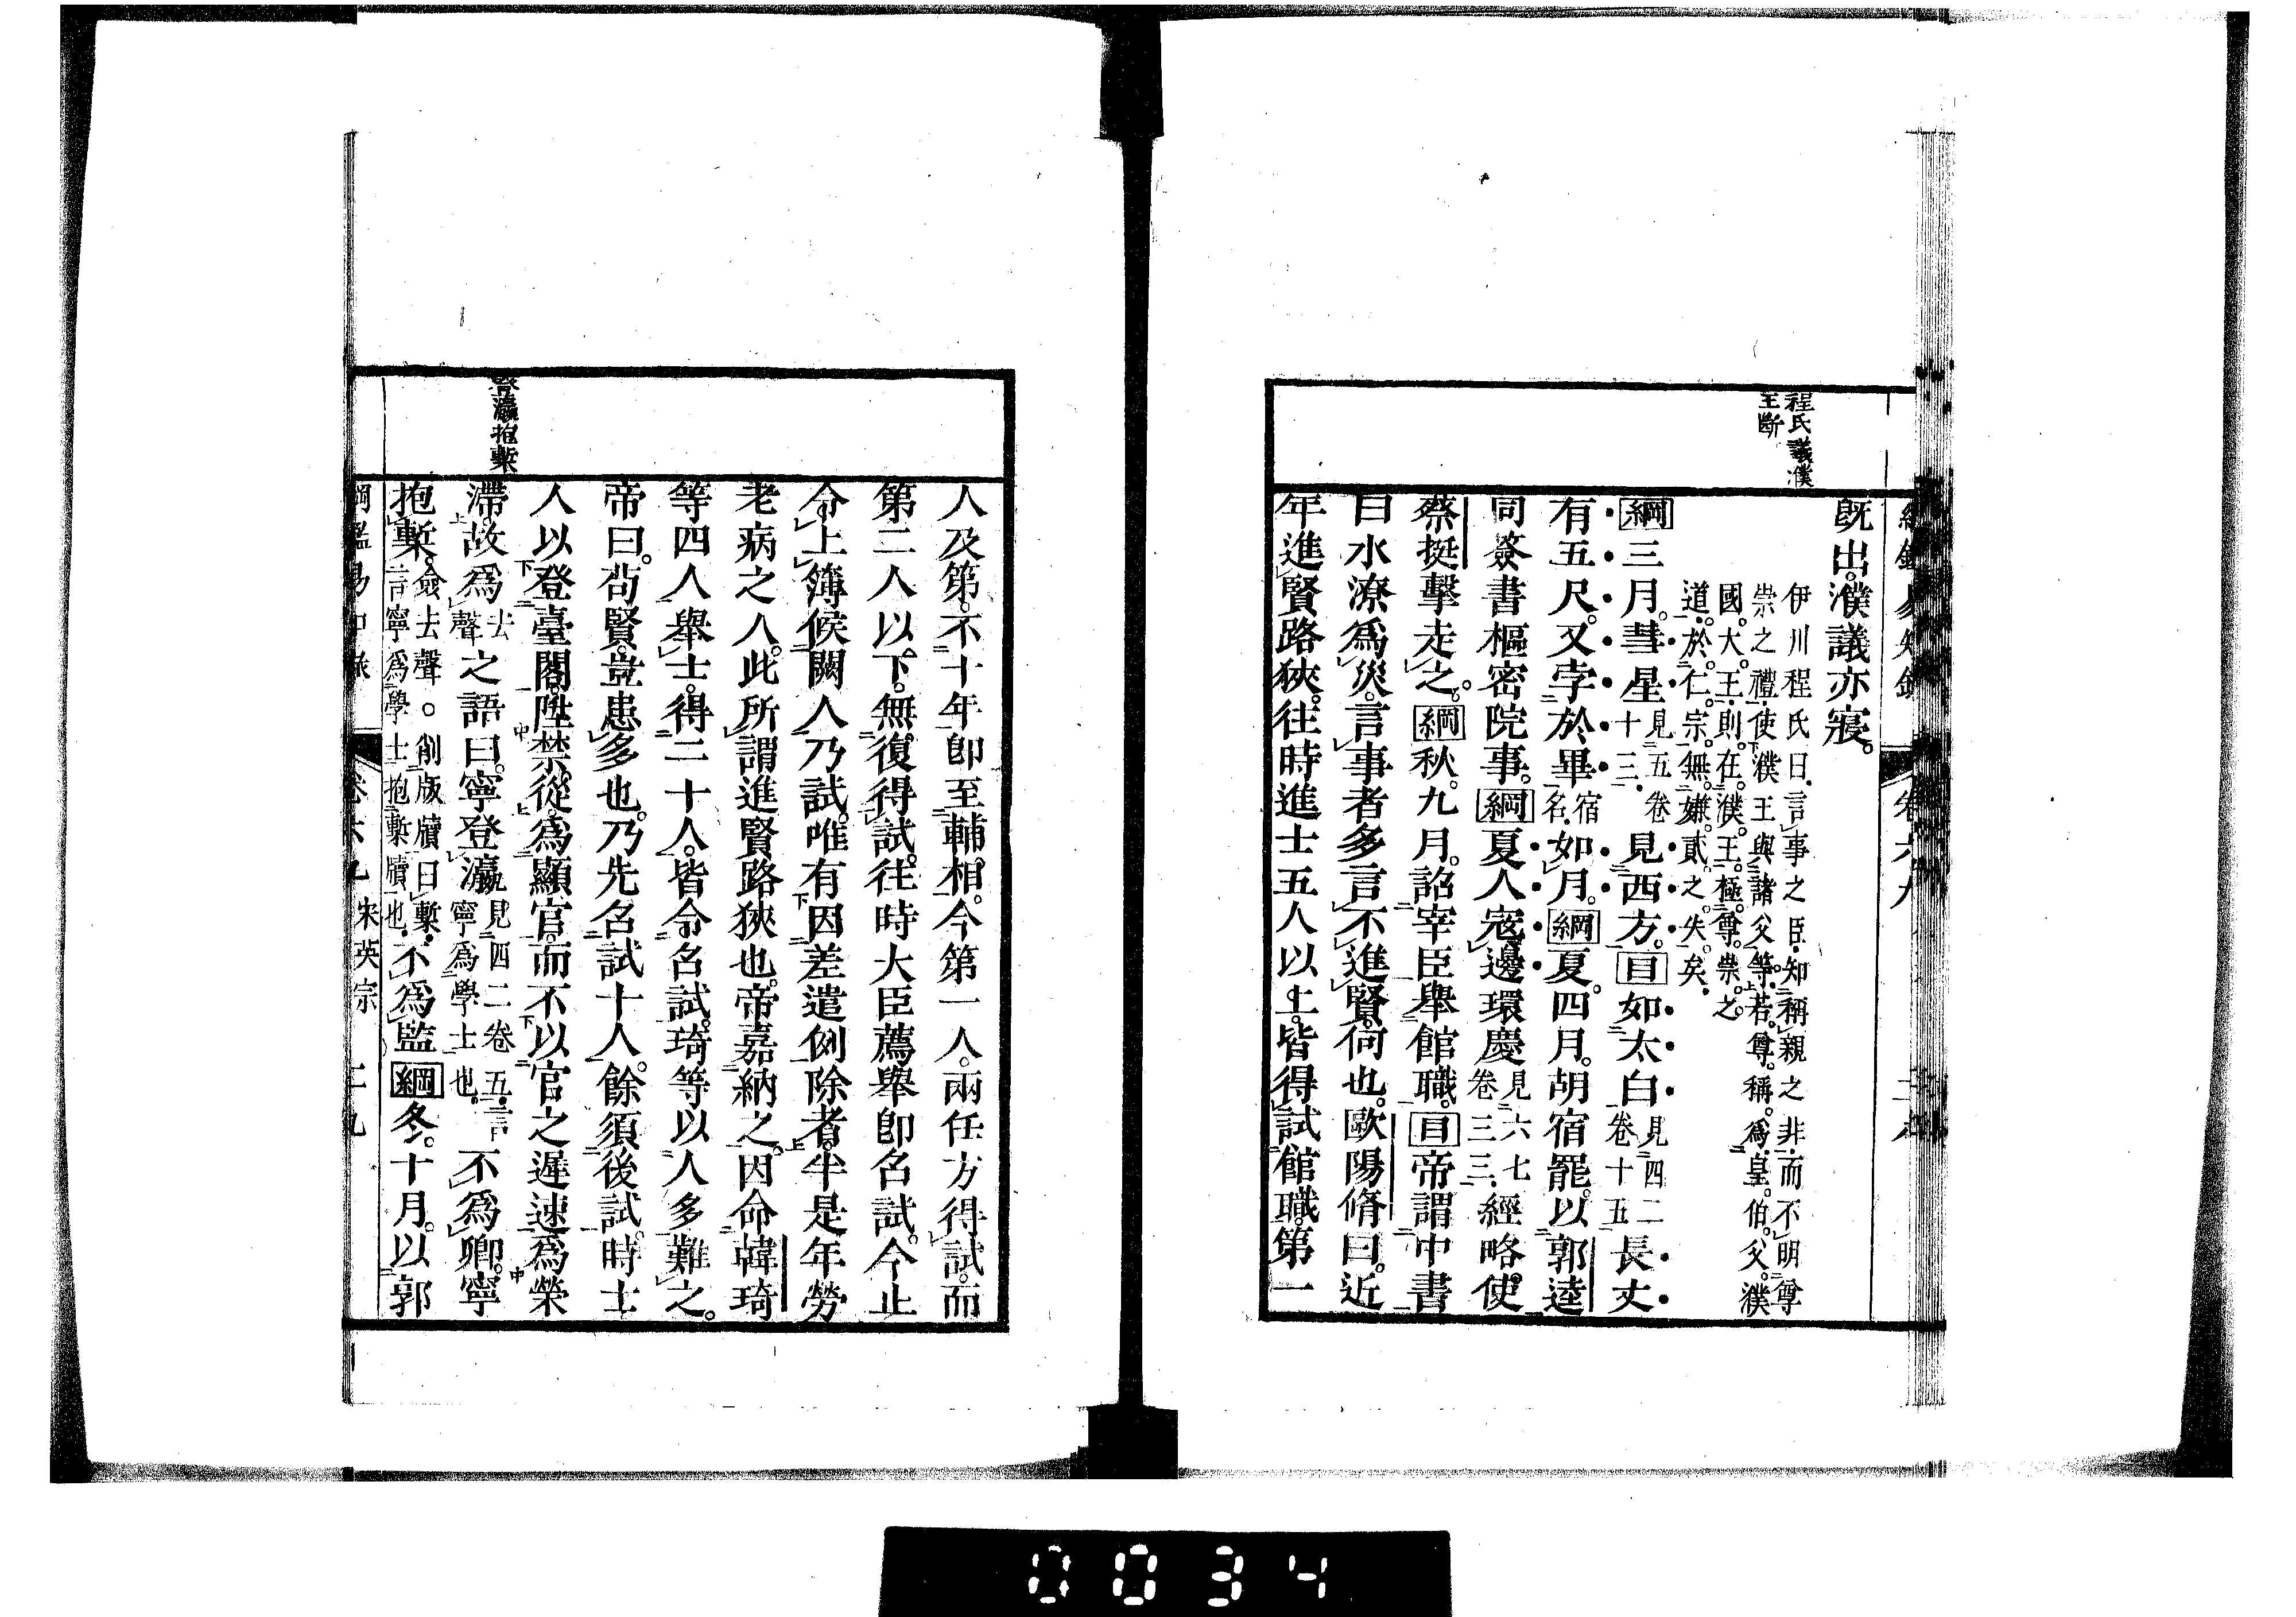 綱鑑易知錄 卷六九
程氏議濮
王斷
既出。濮議亦寢。
伊川程氏曰。言事之臣。知稱親之非。而不明尊
崇之禮。使濮王與諸父等。若尊稱。為皇伯父。濮
國。大王。則在濮王。極尊崇之
道。於仁宗。無嫌貳之失矣。
綱三月。彗星見五卷十三見西方。目如太白見四二卷十五長丈
有五尺。又孛於畢宿名如月。綱夏。四月。胡宿罷。以郭逵
同簽書樞密院事。綱夏人寇邊環慶見六七卷三三經略使
蔡挺擊走之。綱秋。九月。詔宰臣舉館職。目帝謂中書
曰水潦爲災。言事者多言不進賢。何也。歐陽脩曰。近
年進賢路狹。往時進士五人以上。皆得試館職。第一
人及第。不十年卽至輔相。今第一人。兩任方得試。而
第二人以下。無復得試。往時大臣薦舉卽召試。今止
令上簿候闕人乃試。唯有因差遣例除者。半是年勞
老病之人。此所謂進賢路狹也。帝嘉納之。因命韓琦
等四人舉士。得二十人。皆令召試。琦等以人多難之。
帝曰。茍賢。豈患多也。乃先召試十人。餘須後試。時士
人以登臺閣。陞禁從。爲顯官。而不以官之遲速爲榮
登瀛抱槧
滯。故爲去聲之語曰。寧登瀛見四二卷五言寧爲學士也不爲卿。寧
抱槧。僉去聲。削版牘曰槧。言寧爲學士抱槧牘也不爲監綱冬。十月。以郭
綱鑑易知錄 卷六九 宋英宗 二九
0034